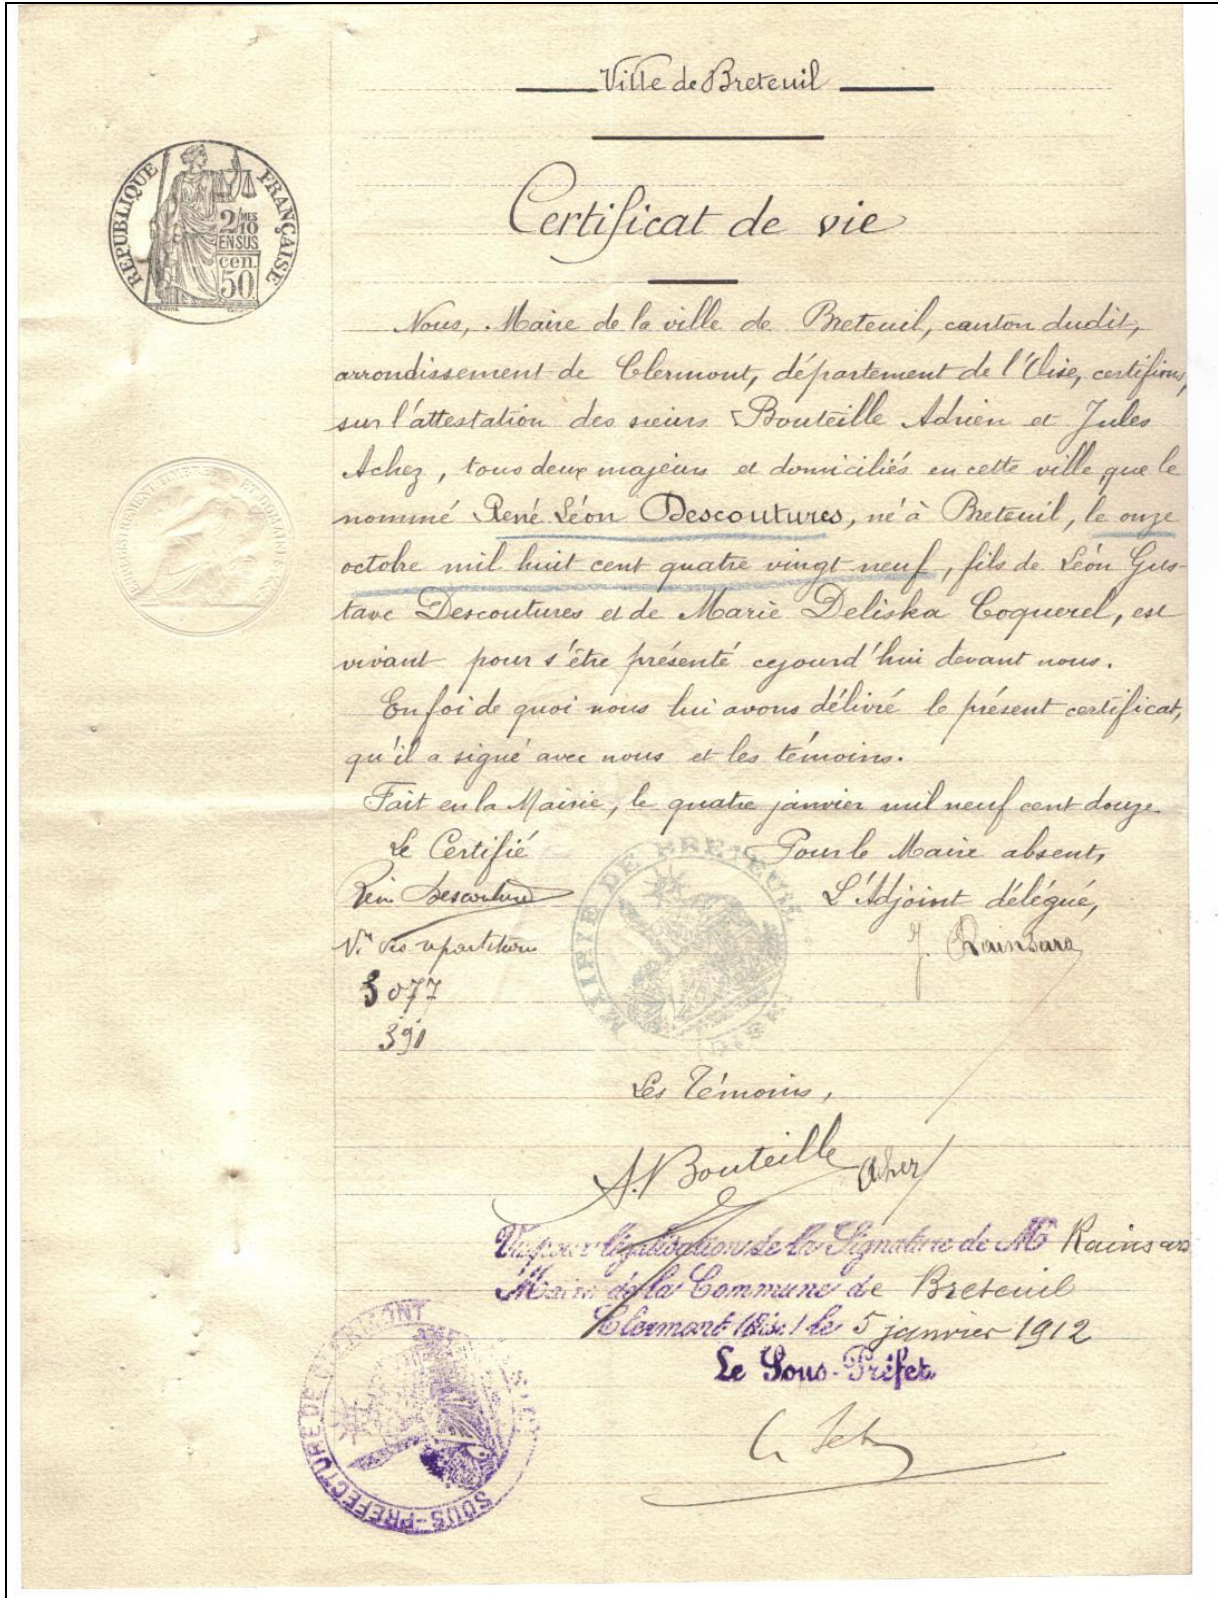 Ville de Breteuil
RÉPUBLIQUE FRANÇAISE
2/10 MES
EN SUS
cen.
50
Certificat de vie
Nous, Maire de la ville de Breteuil, canton dudit,
arrondissement de Clermont, département de l'Oise, certifions,
sur l'attestation des sieurs Bouteille Adrien et Jules
Achez, tous deux majeurs et domiciliés en cette ville que le
nommé René Léon Descoutures, né à Breteuil, le onze
octobre mil huit cent quatre vingt neuf, fils de Léon Gus-
tave Descoutures et de Marie Deliska Coquerel, est
vivant pour s'être présenté cejourd'hui devant nous.
En foi de quoi nous lui avons délivré le présent certificat,
qu'il a signé avec nous et les témoins.
Fait en la Mairie, le quatre janvier mil neuf cent douze.
Le Certifié
Pour le Maire absent,
L'Adjoint délégué,
MAIRIE DE BRETEUIL
3077
391
Les Témoins,
A. Bouteille
Vu pour légalisation de la Signature de Mr
Maire de la Commune de Breteuil
Clermont (Oise) le 5 janvier 1912
Le Sous-Préfet
SOUS-PRÉFECTURE DE CLERMONT